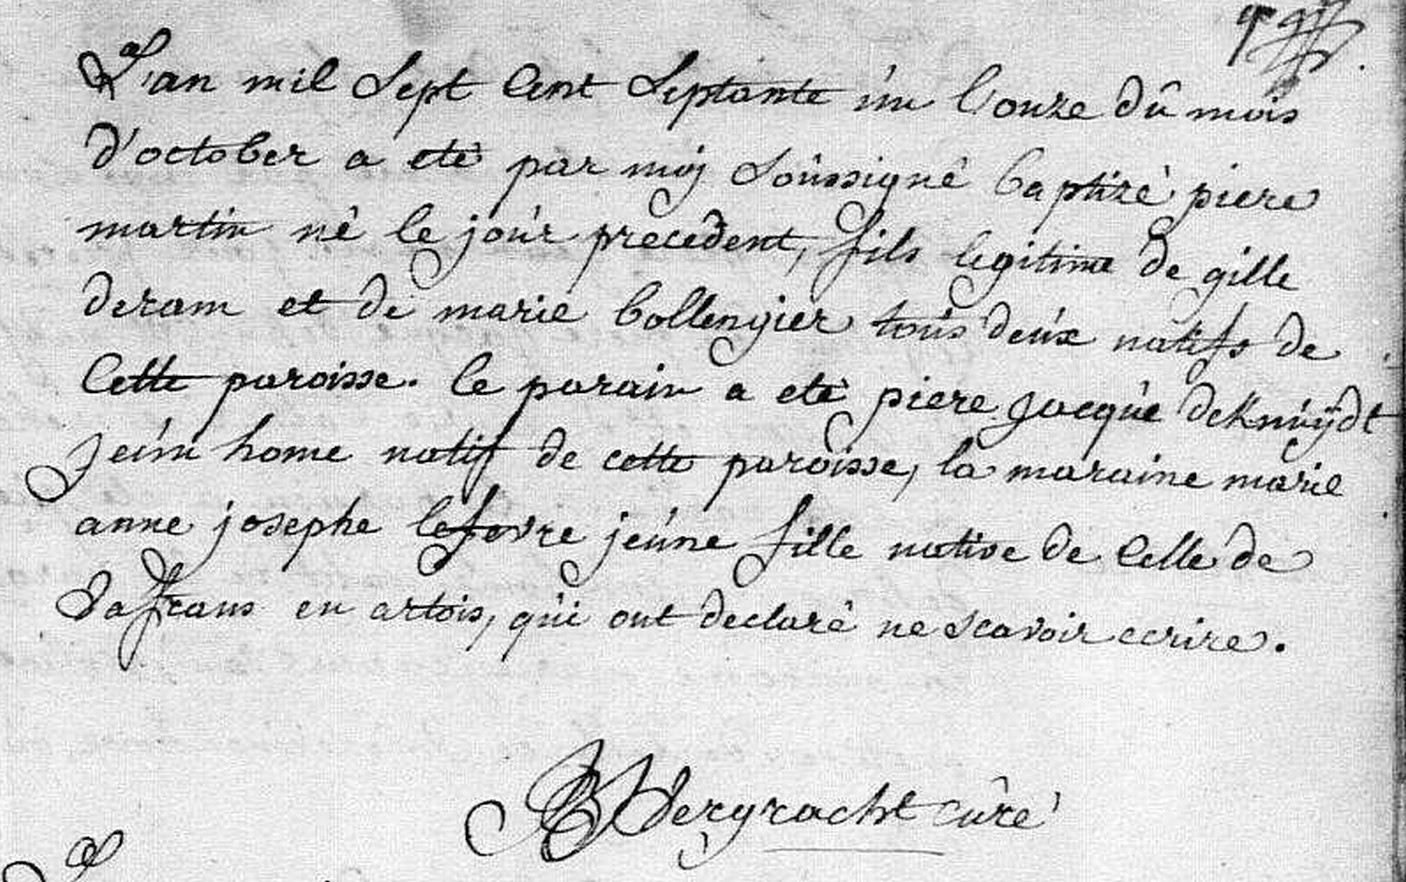 L'an mil Sept Cent Septante ún l'onze dû mois
d'october a eté par moj Soûssigné baptizé piere
martin né le joúr precedent, fils legitime de gille
deram et de marie bollengier toús deúx natifs de
Cette paroisse. le parain a eté piere jacqúe deknúÿdt
jeún home natif de cette paroisse, la maraine marie
anne josephe lefevre jeúne fille native de Celle de
en artois, qúi ont declaré ne scavoir ecrire.
Vergracht cúré